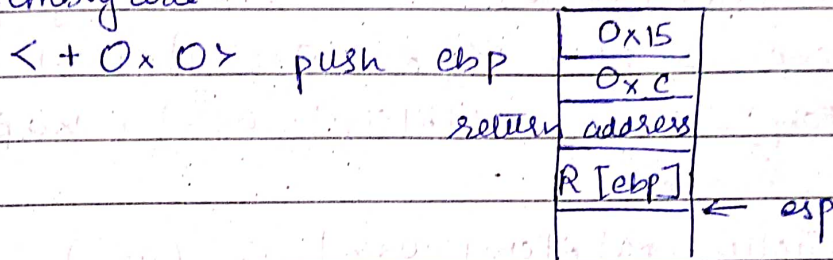 <+0x0> push ebp
0x15
0xc
return address
R [ebp]
← esp